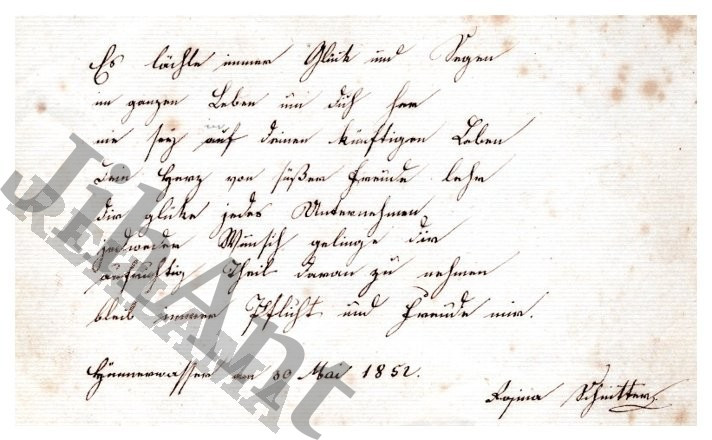 Es lächle immer Glück und Segen
im ganzen Leben um dich her
nie sey auf deinen künftigen Leben
Dein Herz von süßer Freude lehr
dir glüke jedes Unternehmen
jedweder Wunsch gelinge dir
aufrichtig Theil daran zu nehmen
bleib immer Pflicht und Freude mir.
am 30 Mai 1852.
Rosina Schnitter
JihAnt
REKLAMAT